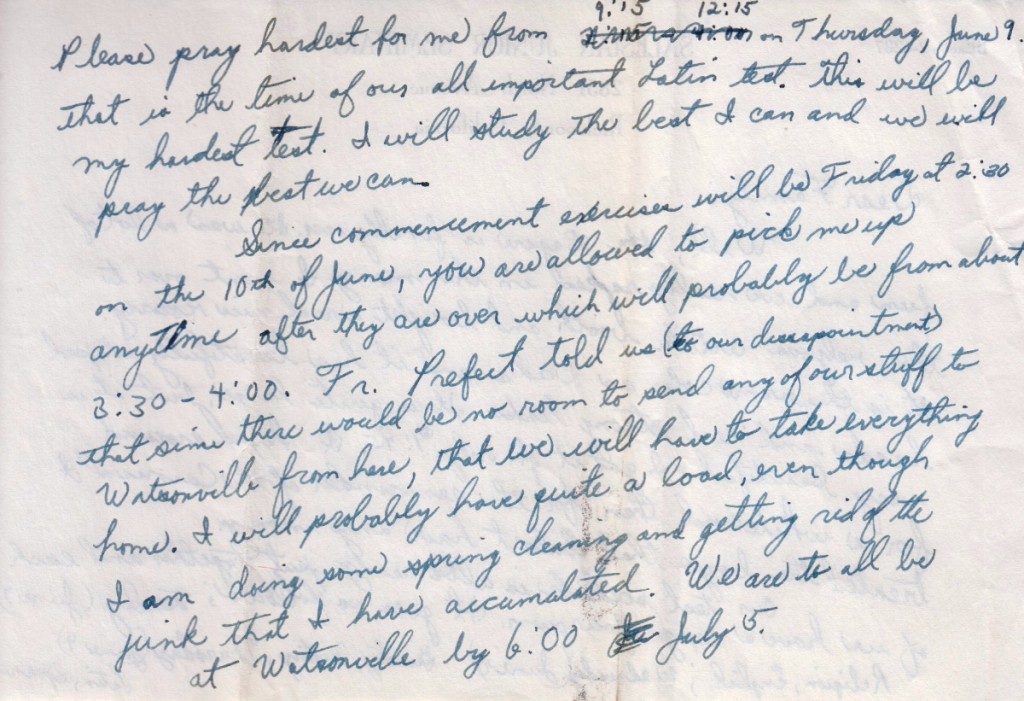 9:15 12:15
Please pray hardest for me from on Thursday, June 9.
that is the time of our all important Latin test. This will be
my hardest test. I will study the best I can and we will
pray the best we can.
Since commencement exercises will be Friday at 2:30
on the 10th of June, you are allowed to pick me up
anytime after they are over which will probably be from about
3:30 - 4:00. Fr. Prefect told us (to our dissapointment)
that since there would be no room to send any of our stuff to
Watsonville from here, that we will have to take everything
home. I will probably have quite a load, even though
I am doing some spring cleaning and getting rid of the
junk that I have accumulated. We are to all be
at Watsonville by 6:00 July 5.